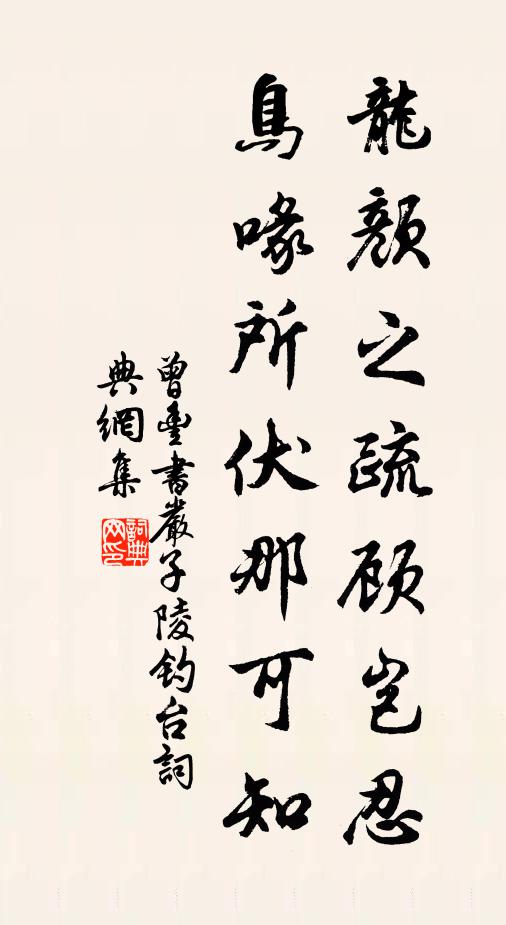 龍顏之疏顧豈忍
鳥喙所伏那可知
曾豊書嚴子陵釣台詞
典網集
詞典网印